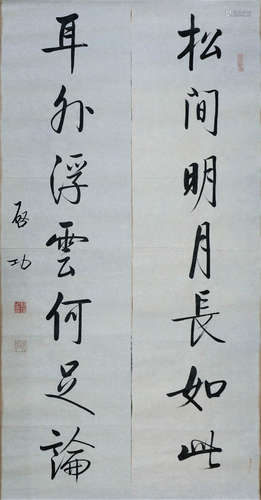 松间明月長如此
耳外浮雲何足論
啟功